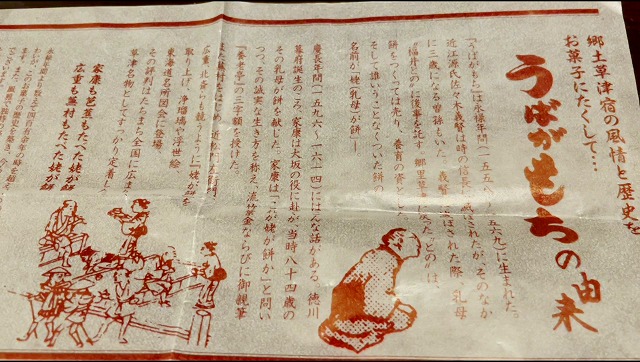 郷土草津宿の風情と歴史を
お菓子にたくして…
うばがもちの由来
「うばがもち」は永禄年間(一五五八〜一五六九)に生まれた。
近江源氏佐々木義賢は時の信長に滅ぼされたが、そのなか
に三歳になる曽孫もいた。義賢
「福井との」に後事を託す。郷里草津に戻った「との」は、
餅をつくっては売り、養育の資とした。
そして誰いうことなくついた餅の
名前が「姥(乳母)が餅」―。
慶長年間(一五九六〜一六一四)にはこんな話がある。徳川
幕府誕生のころ、家康は大坂の役に赴が当時八十四歳の
その乳母が餅を献じた。家康は「これが姥が餅か」と問い
つつ、その誠実な生き方を称え、流
ならびに御親筆
「養老亭」の三字額を授けた。
をはじめ、近松門左衛門
広重、北斎らも競うように「姥が餅」を
取り上げ、浄瑠璃や浮世絵、
東海道名所図会に登場、
その評判はたちまち全国に広ま
草津名物としてすっかり定着し
家康も芭蕉もたべた姥が餅
広重も蕪村もたべた姥が餅